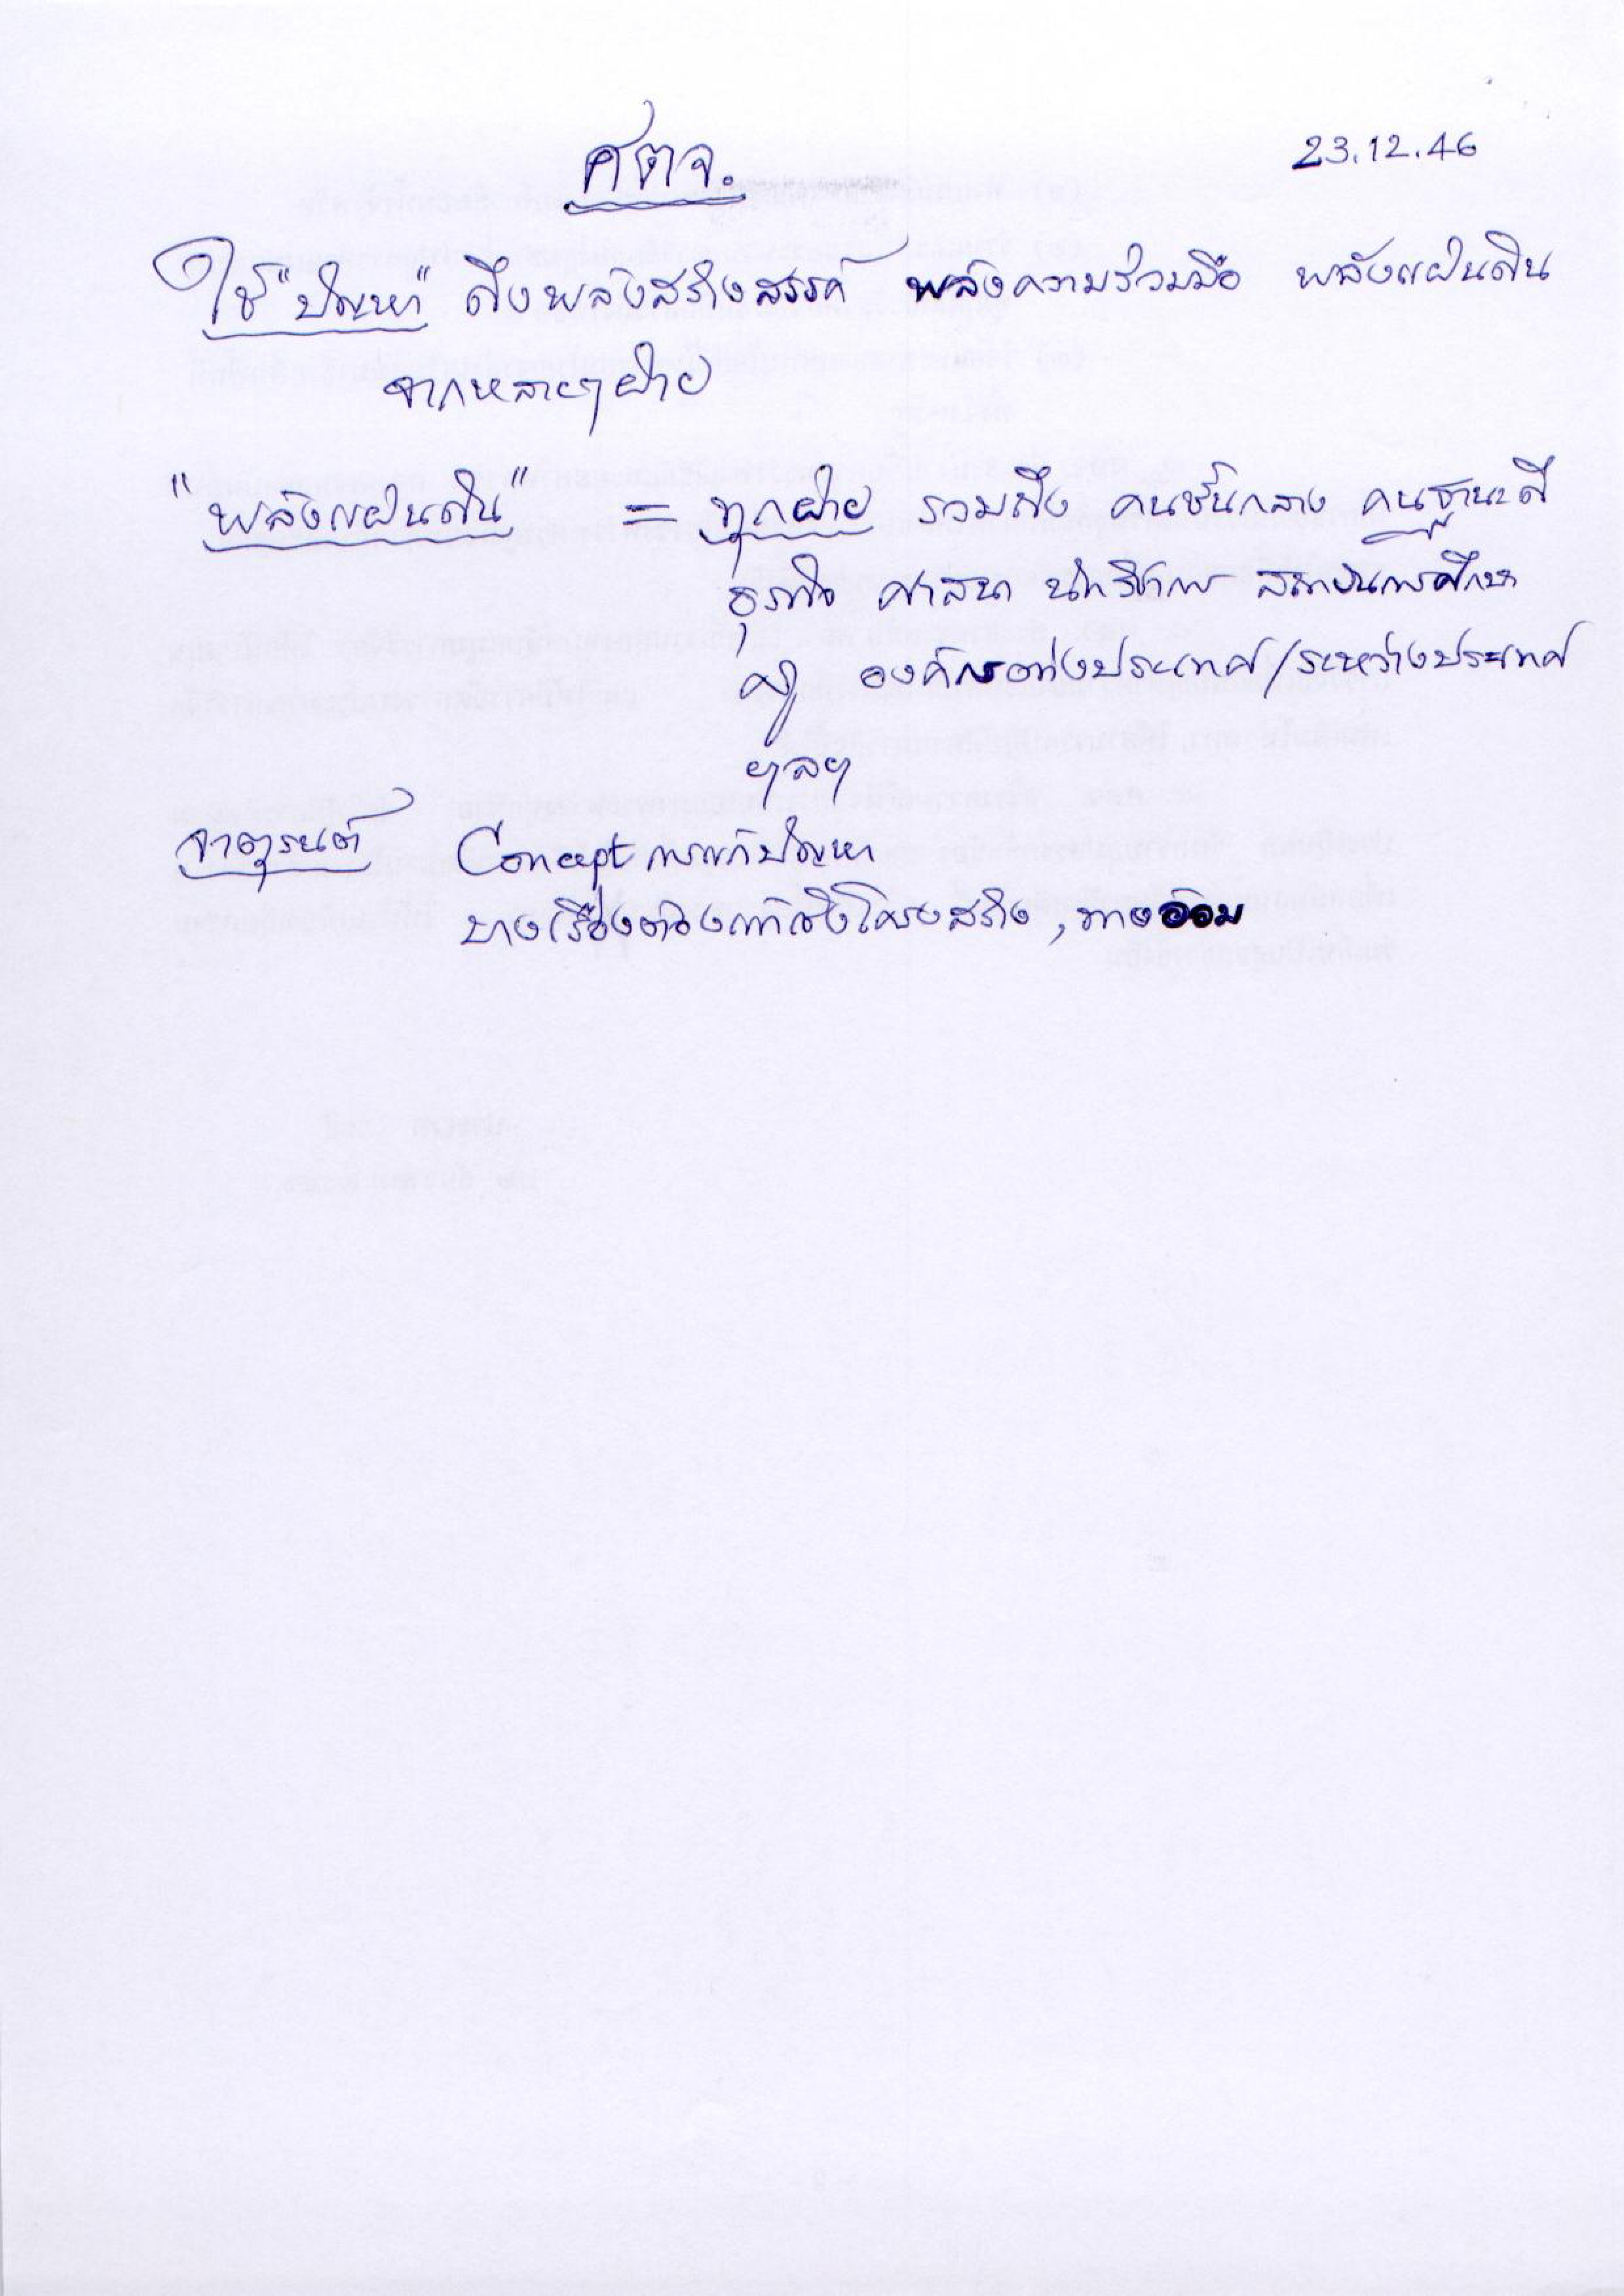 ศตจ.
23.12.46
ใช้ "ปัญหา" ดึงพลังสร้างสรรค์ พลังความร่วมมือ พลังแผ่นดิน
จากหลายๆฝ่าย
"พลังแผ่นดิน" = ทุกฝ่าย รวมถึง คนชั้นกลาง คนฐานะดี
ธุรกิจ ศาสนา นักวิชาการ สถาบันการศึกษา
องค์กรต่างประเทศ/ระหว่างประเทศ
ฯลฯ
จาตุรนต์ Concept การแก้ปัญหา
บางเรื่องต้องแก้เชิงโครงสร้าง, ทางอ้อม